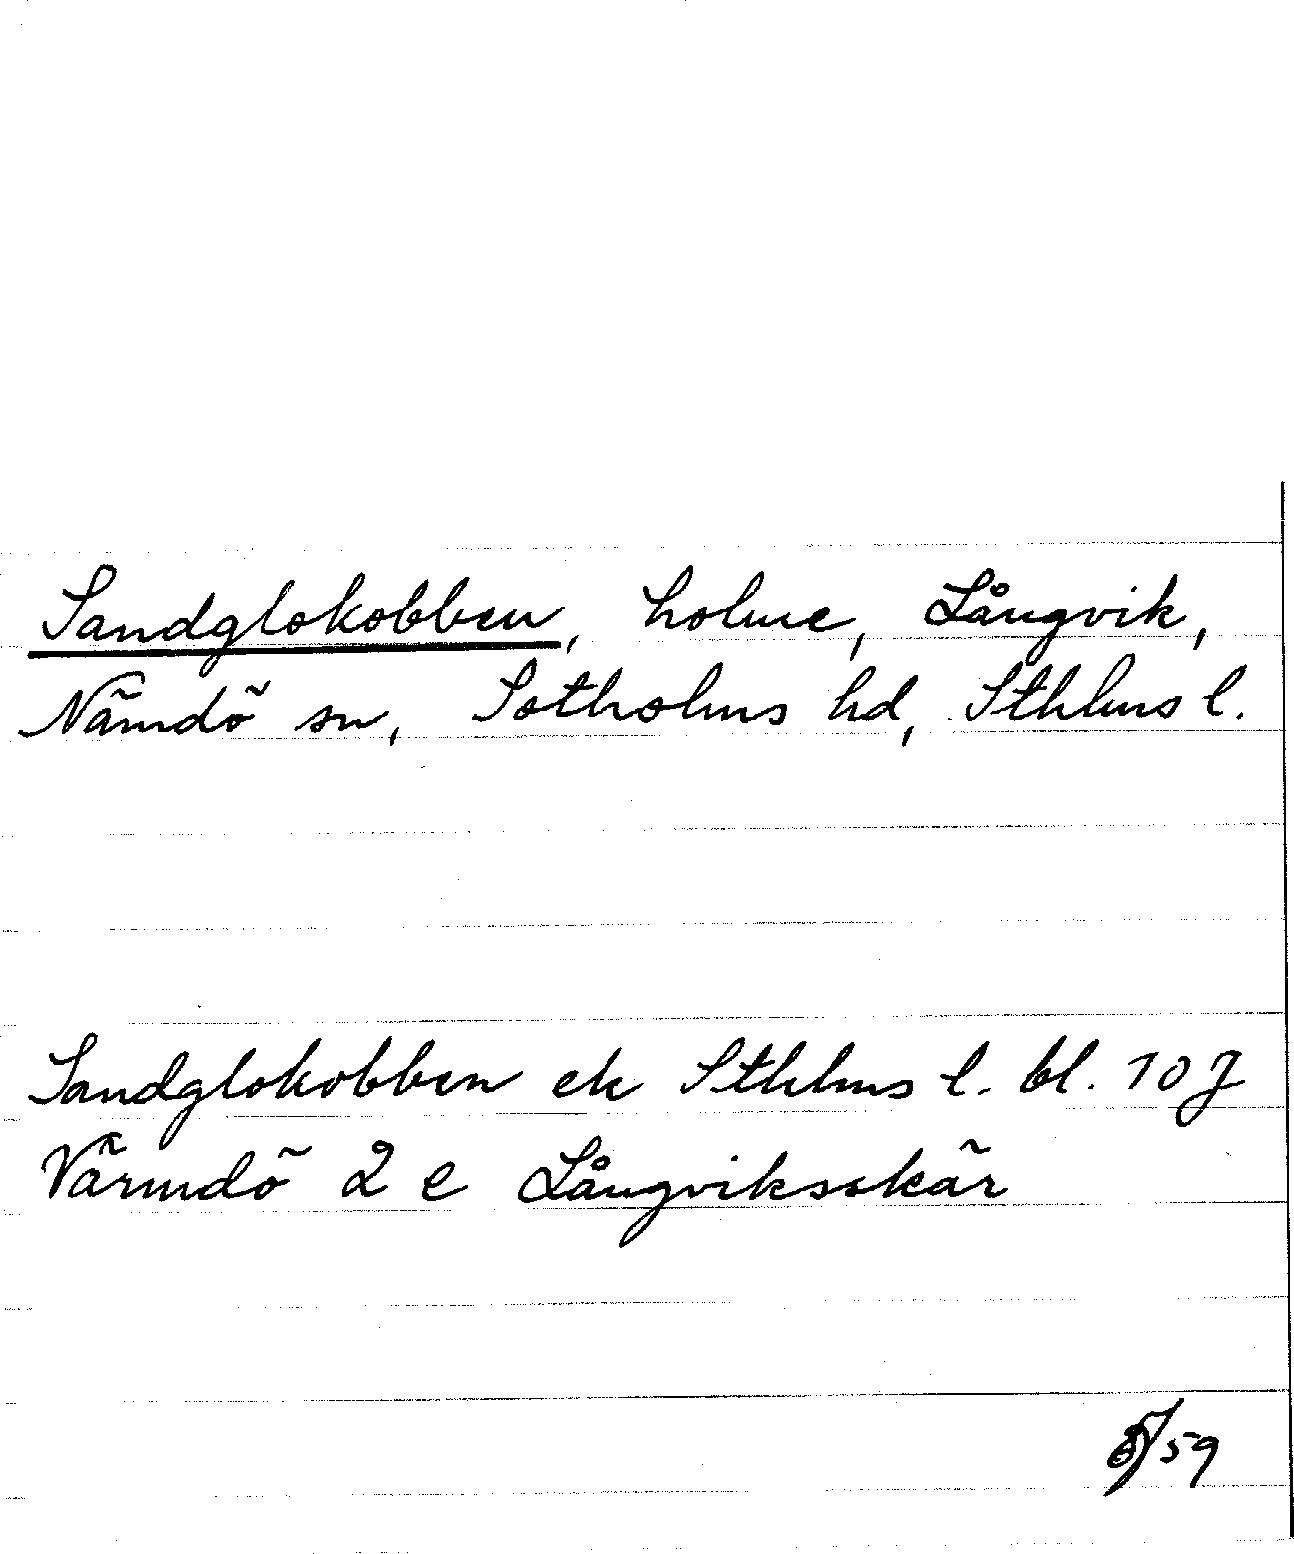 Sandglokobben, holme, Långvik,
Nämdö sn, Sotholms hd, Sthlms l.
Sandglokobben ek Sthlms l. bl. 10 J
Värmdö 2 e Långviksskär
/59